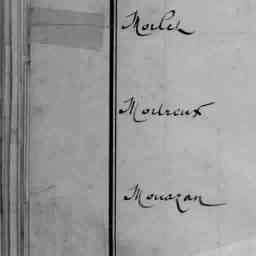 Morlek
Moureux
Mouazan